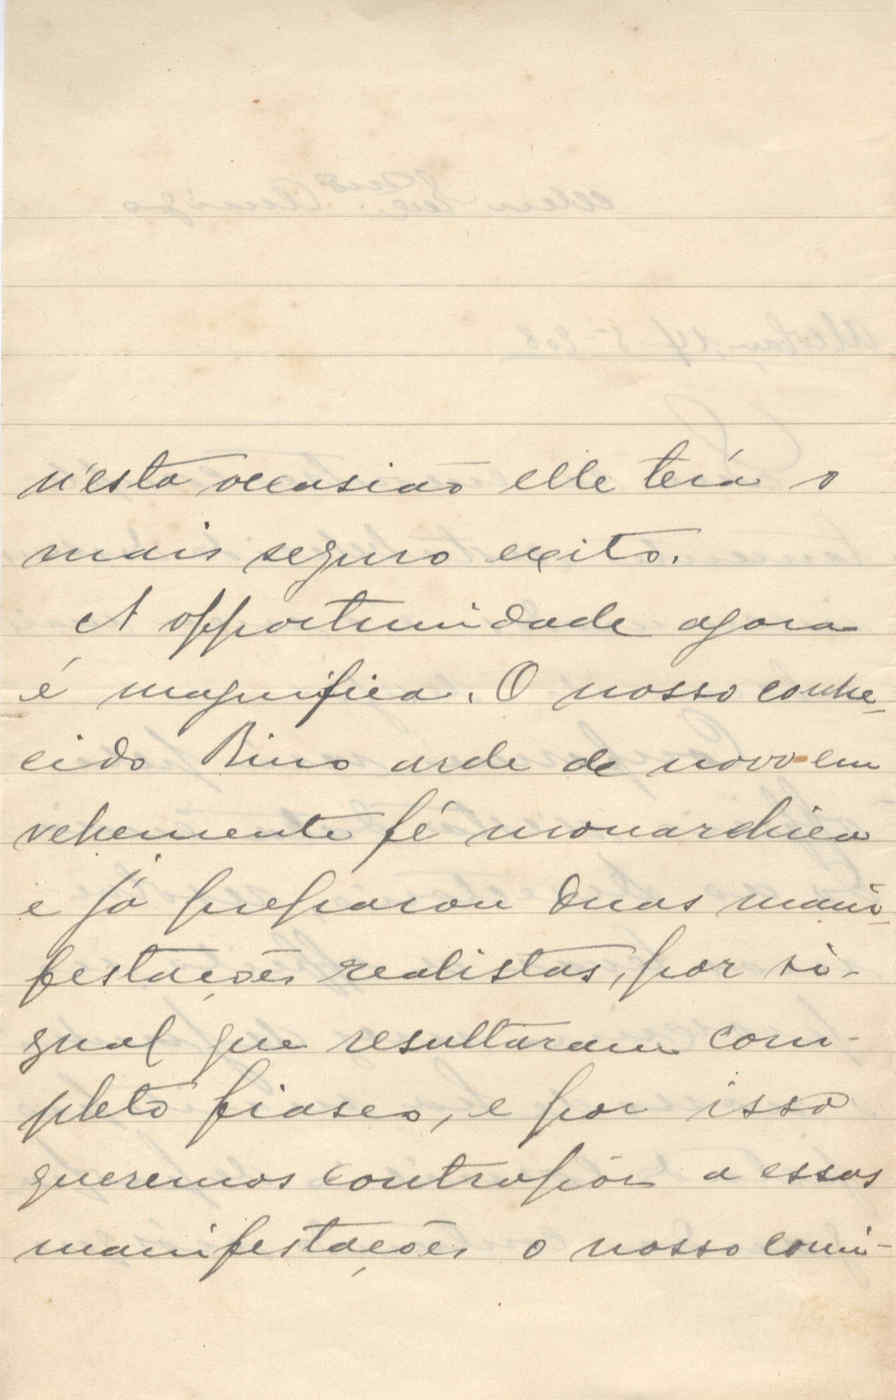 n'esta occasião elle terá o
mais seguro exito.
A opportunidade agora
é magnifica. O nosso conhe-
cido Bino arde de novo em
vehemente fé monarchica
e já preparou duas mani-
festações realistas, por si-
gnal que resultaram com-
pleto fiasco, e por isso
queremos contrapôr a essas
manifestações o nosso comi-